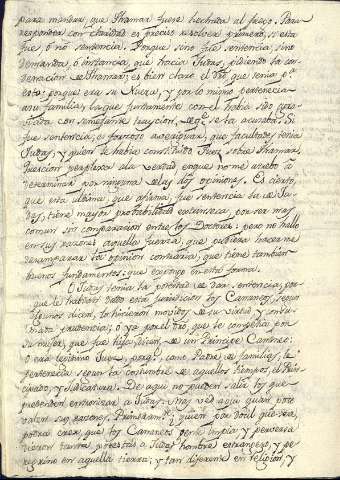 para mandar, que Thamar fuese hechada al fuego. Para
responder con claridad es preciso resolver primero, si esta
fue, ó no sentencia. Porque sino fue sentencia, sino
demanda, ó instancia, que hacia Judas, pidiendo la con-
denacion de Thamar; es bien claro el dro que tenia pa
esto; porque era su Nuera, y por lo mismo pertenecia
a su familia, la que juntamente con el habia sido
con semejante traycion, de qe se la acusaba. Si
fue sentencia; es forzoso averiguar, que facultades tenia
Judas; y quien le habia constituido Juez sobre Thamar.
Question perplexa a la verdad, en que no me atrevo a
determinar por ninguna de las dos opiniones. Es cierto,
que esta ultima, que afirma, fue sentencia la de Ju-
das, tiene mayor probabilidad extrinseca, por ser mas
comun sin comparacion entre los Doctores; pero no hallo
en sus razones aquella fuerza, que pudiera hacerme
desamparar la opinion contraria, que tiene tambien
buenos fundamentos; que expongo en esta forma.
O Judas tenia la potestad de dar sentencias, por-
que le habian dado esta jurisdiccion los Cananeos, segun
algunos dicen, lo hicieron movidos de su virtud y consu-
mada prudencia; ó ya por el dro que le competia por
su muger, que fue hija, dicen, de un Principe Cananeo:
ó era legitimo Juez, porqe como Padre de familias, le
pertenecia segun la costumbre de aquellos tiempos, el Prin-
cipado, y Judicatura. De aqui no pueden salir los que
pretenden entronizar a Judas: mas ved aqui quan poco
valen sus razones. Primeramte, quien por docil que sea,
podra creer, que los Cananeos gente impia y perversa
dieron tanta potestad a Judas hombre extrangero, y pe-
regrino en aquella tierra; y tan diferente en religion, y